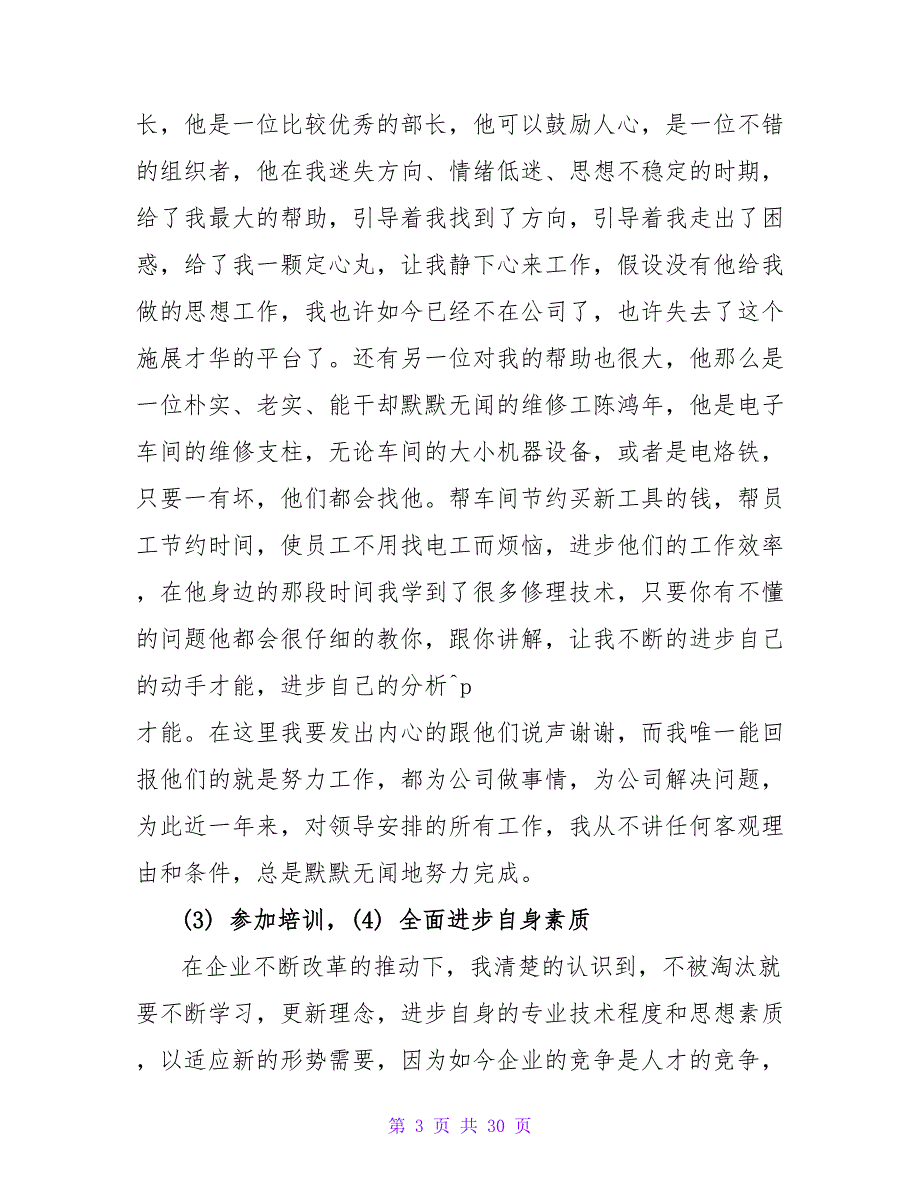 长，他是一位比较优秀的部长，他可以鼓励人心，是一位不错
的组织者，他在我迷失方向、情绪低迷、思想不稳定的时期，
给了我最大的帮助，引导着我找到了方向，引导着我走出了困
惑，给了我一颗定心丸，让我静下心来工作，假设没有他给我
做的思想工作，我也许如今已经不在公司了，也许失去了这个
施展才华的平台了。还有另一位对我的帮助也很大，他那么是
一位朴实、老实、能干却默默无闻的维修工陈鸿年，他是电子
车间的维修支柱，无论车间的大小机器设备，或者是电烙铁，
只要一有坏，他们都会找他。帮车间节约买新工具的钱，帮员
工节约时间，使员工不用找电工而烦恼，进步他们的工作效率
，在他身边的那段时间我学到了很多修理技术，只要你有不懂
的问题他都会很仔细的教你，跟你讲解，让我不断的进步自己
的动手才能，进步自己的分析^p
才能。在这里我要发出内心的跟他们说声谢谢，而我唯一能回
报他们的就是努力工作，都为公司做事情，为公司解决问题，
为此近一年来，对领导安排的所有工作，我从不讲任何客观理
由和条件，总是默默无闻地努力完成。
(3) 参加培训，(4) 全面进步自身素质
在企业不断改革的推动下，我清楚的认识到，不被淘汰就
要不断学习，更新理念，进步自身的专业技术程度和思想素质
，以适应新的形势需要，因为如今企业的竞争是人才的竞争，
第 3 页 共 30 页